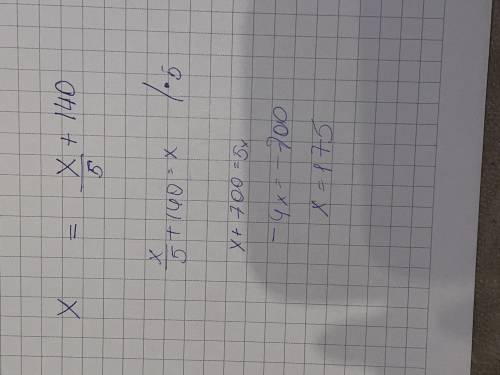 x = x/5 + 140
x/5 + 140 = x /·5
x + 700 = 5x
-4x = -700
x = 175